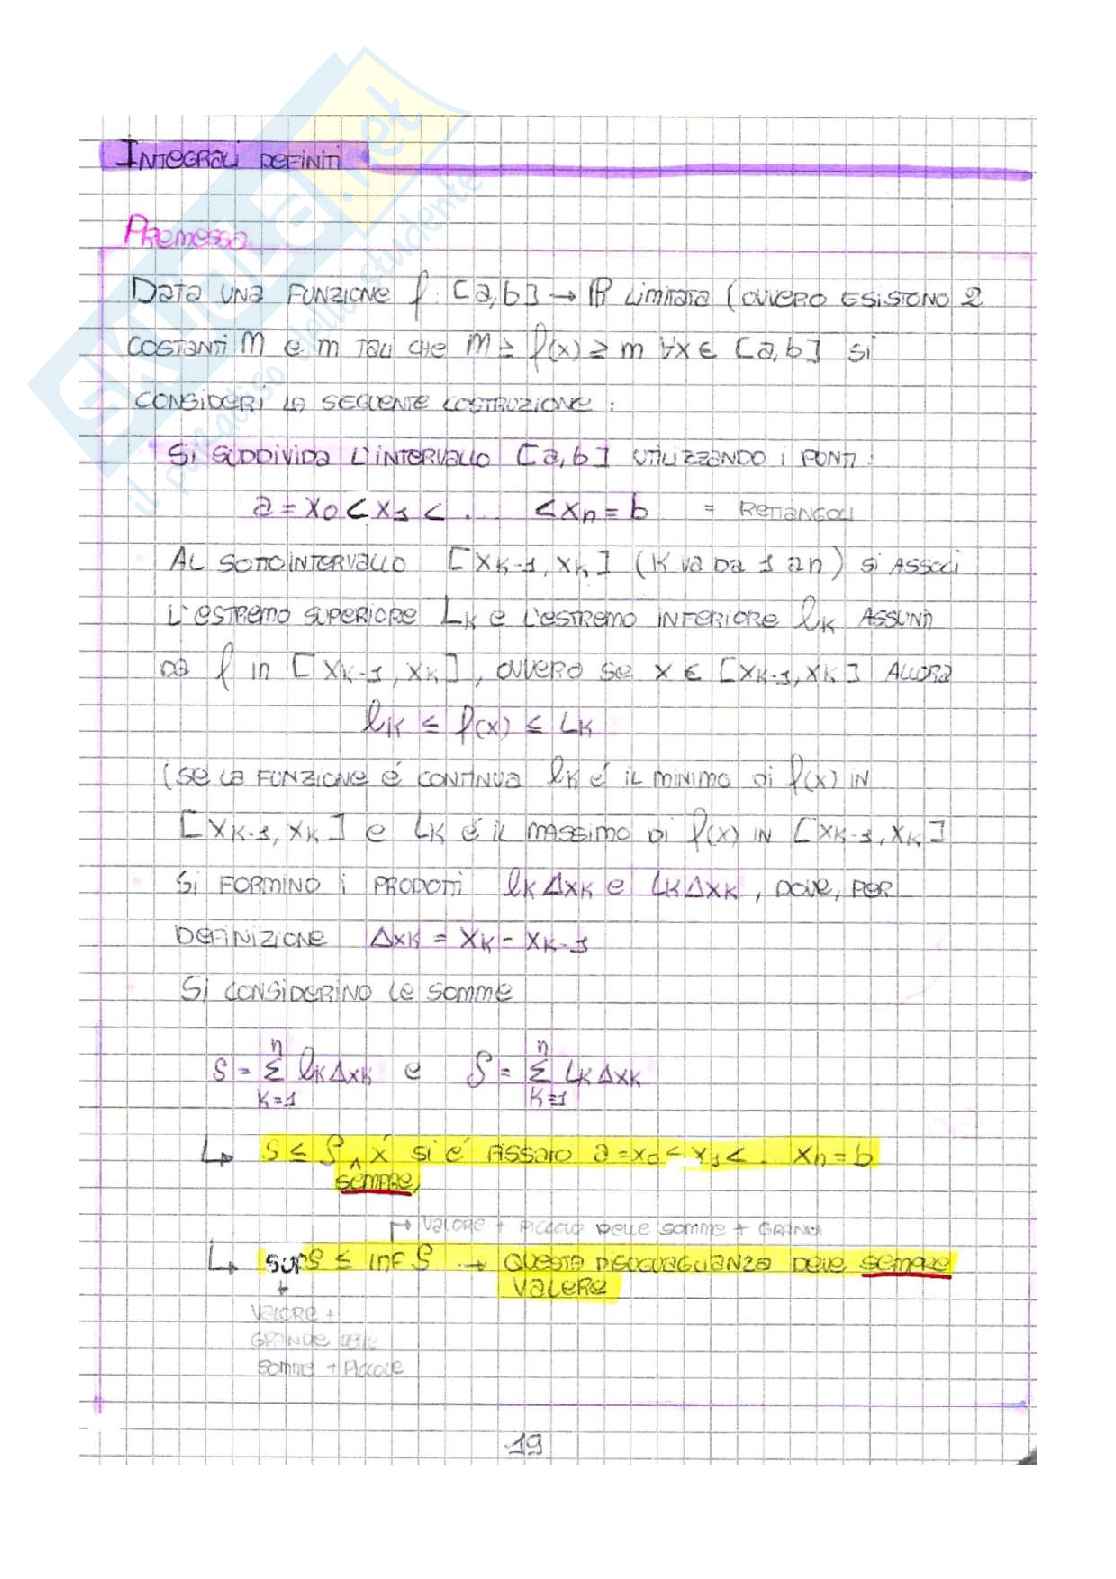 INTEGRALI DEFINITI
Premessa
DATA UNA FUNZIONE f: [a,b] → R LIMITATA (OVVERO ESISTONO 2
COSTANTI M e m TALI CHE M ≥ f(x) ≥ m ∀x ∈ [a,b] SI
CONSIDERI LA SEGUENTE COSTRUZIONE:
SI SUDDIVIDA L'INTERVALLO [a,b] UTILIZZANDO I PUNTI:
a = x0 < x1 < .... < xn = b = RETTANGOLI
AL SOTTOINTERVALLO [xK-1, xK] (K VA DA 1 a n) SI ASSOCI
L'ESTREMO SUPERIORE LK E L'ESTREMO INFERIORE lK ASSUNTI
DA f IN [xK-1, xK], OVVERO SE x ∈ [xK-1, xK] ALLORA
lK ≤ f(x) ≤ LK
(SE LA FUNZIONE É CONTINUA lK é IL MINIMO DI f(x) IN
[xK-1, xK] e LK É IL MASSIMO DI f(x) IN [xK-1, xK]
SI FORMINO I PRODOTTI lK ΔxK e LK ΔxK, DOVE, PER
DEFINIZIONE ΔxK = xK - xK-1
SI CONSIDERINO LE SOMME
s = n Σ K=1 lK ΔxK e S = n Σ K=1 LK ΔxK
↳ s ≤ S, x' SI É FISSATO a = x0 < x1 < .. xn = b
SEMPRE,
↦ VALORE + PICCOLO DELLE SOMME + GRANDI
↳ sup s ≤ inf S → QUESTA DISUGUAGLIANZA DEVE SEMPRE
VALERE
VALORE +
GRANDE DELLE
SOMME + PICCOLE
19
SKUOLA.net
il paradiso dello studente